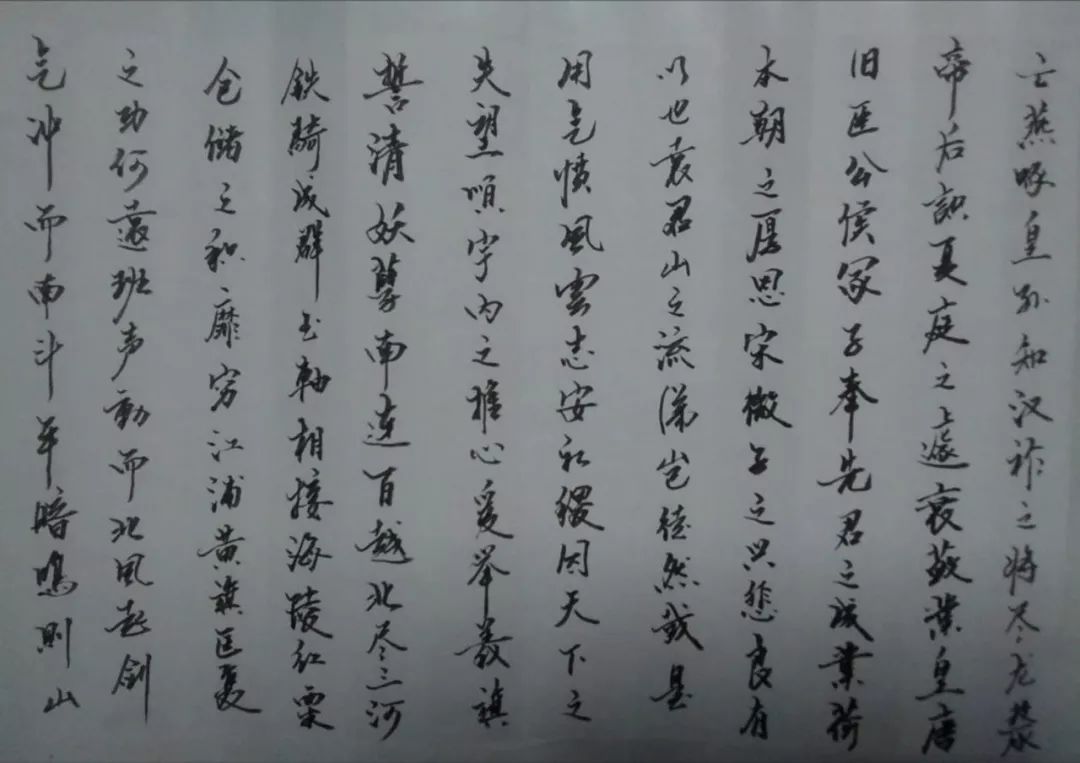 亡燕啄皇孙知汉祚之将尽龙漦
帝后识夏庭之遽衰敬业皇唐
旧臣公侯冢子奉先君之成业荷
本朝之厚恩宋微子之兴悲良有
以也袁君山之流涕岂徒然哉是
用气愤风云志安社稷因天下之
失望顺宇内之推心爰举义旗
誓清妖孽南连百越北尽三河
铁骑成群玉轴相接海陵红粟
仓储之积靡穷江浦黄旗匡复
之功何远班声动而北风起剑
气冲而南斗平喑呜则山